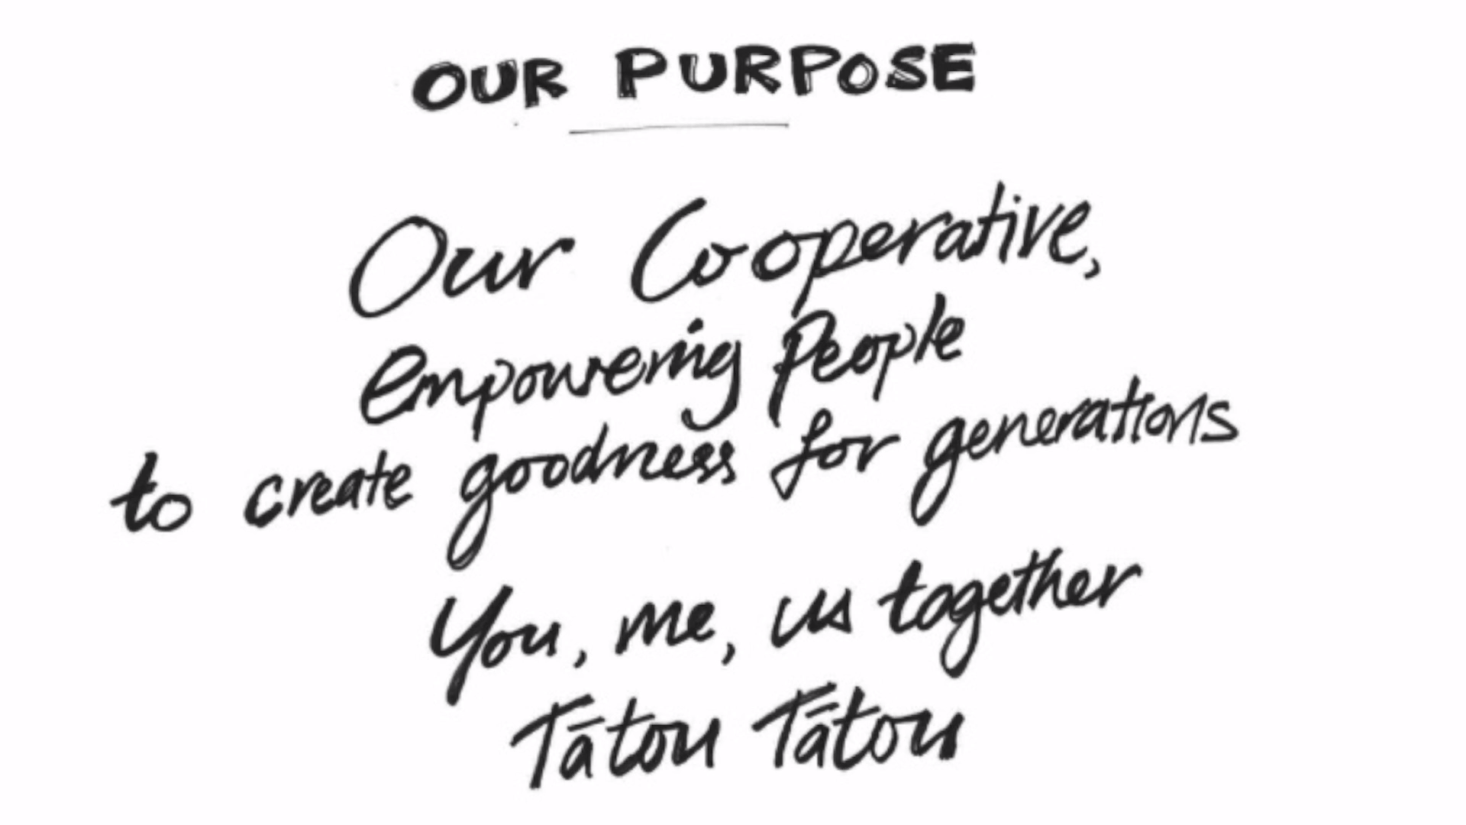 OUR PURPOSE
Our Cooperative,
empowering people
to create goodness for generations
You, me, us together
Tātou Tātou